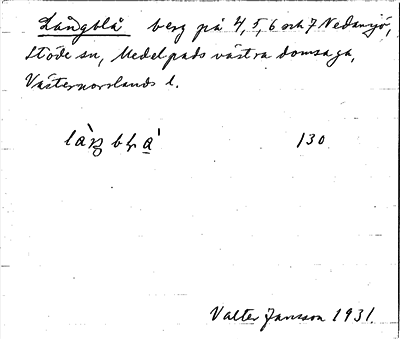 Långblå berg på 4, 5, 6 och 7 Nedansjö,
Stöde sn, Medelpads västra domsaga,
Västernorrlands l.
130
Valter Jansson 1931.